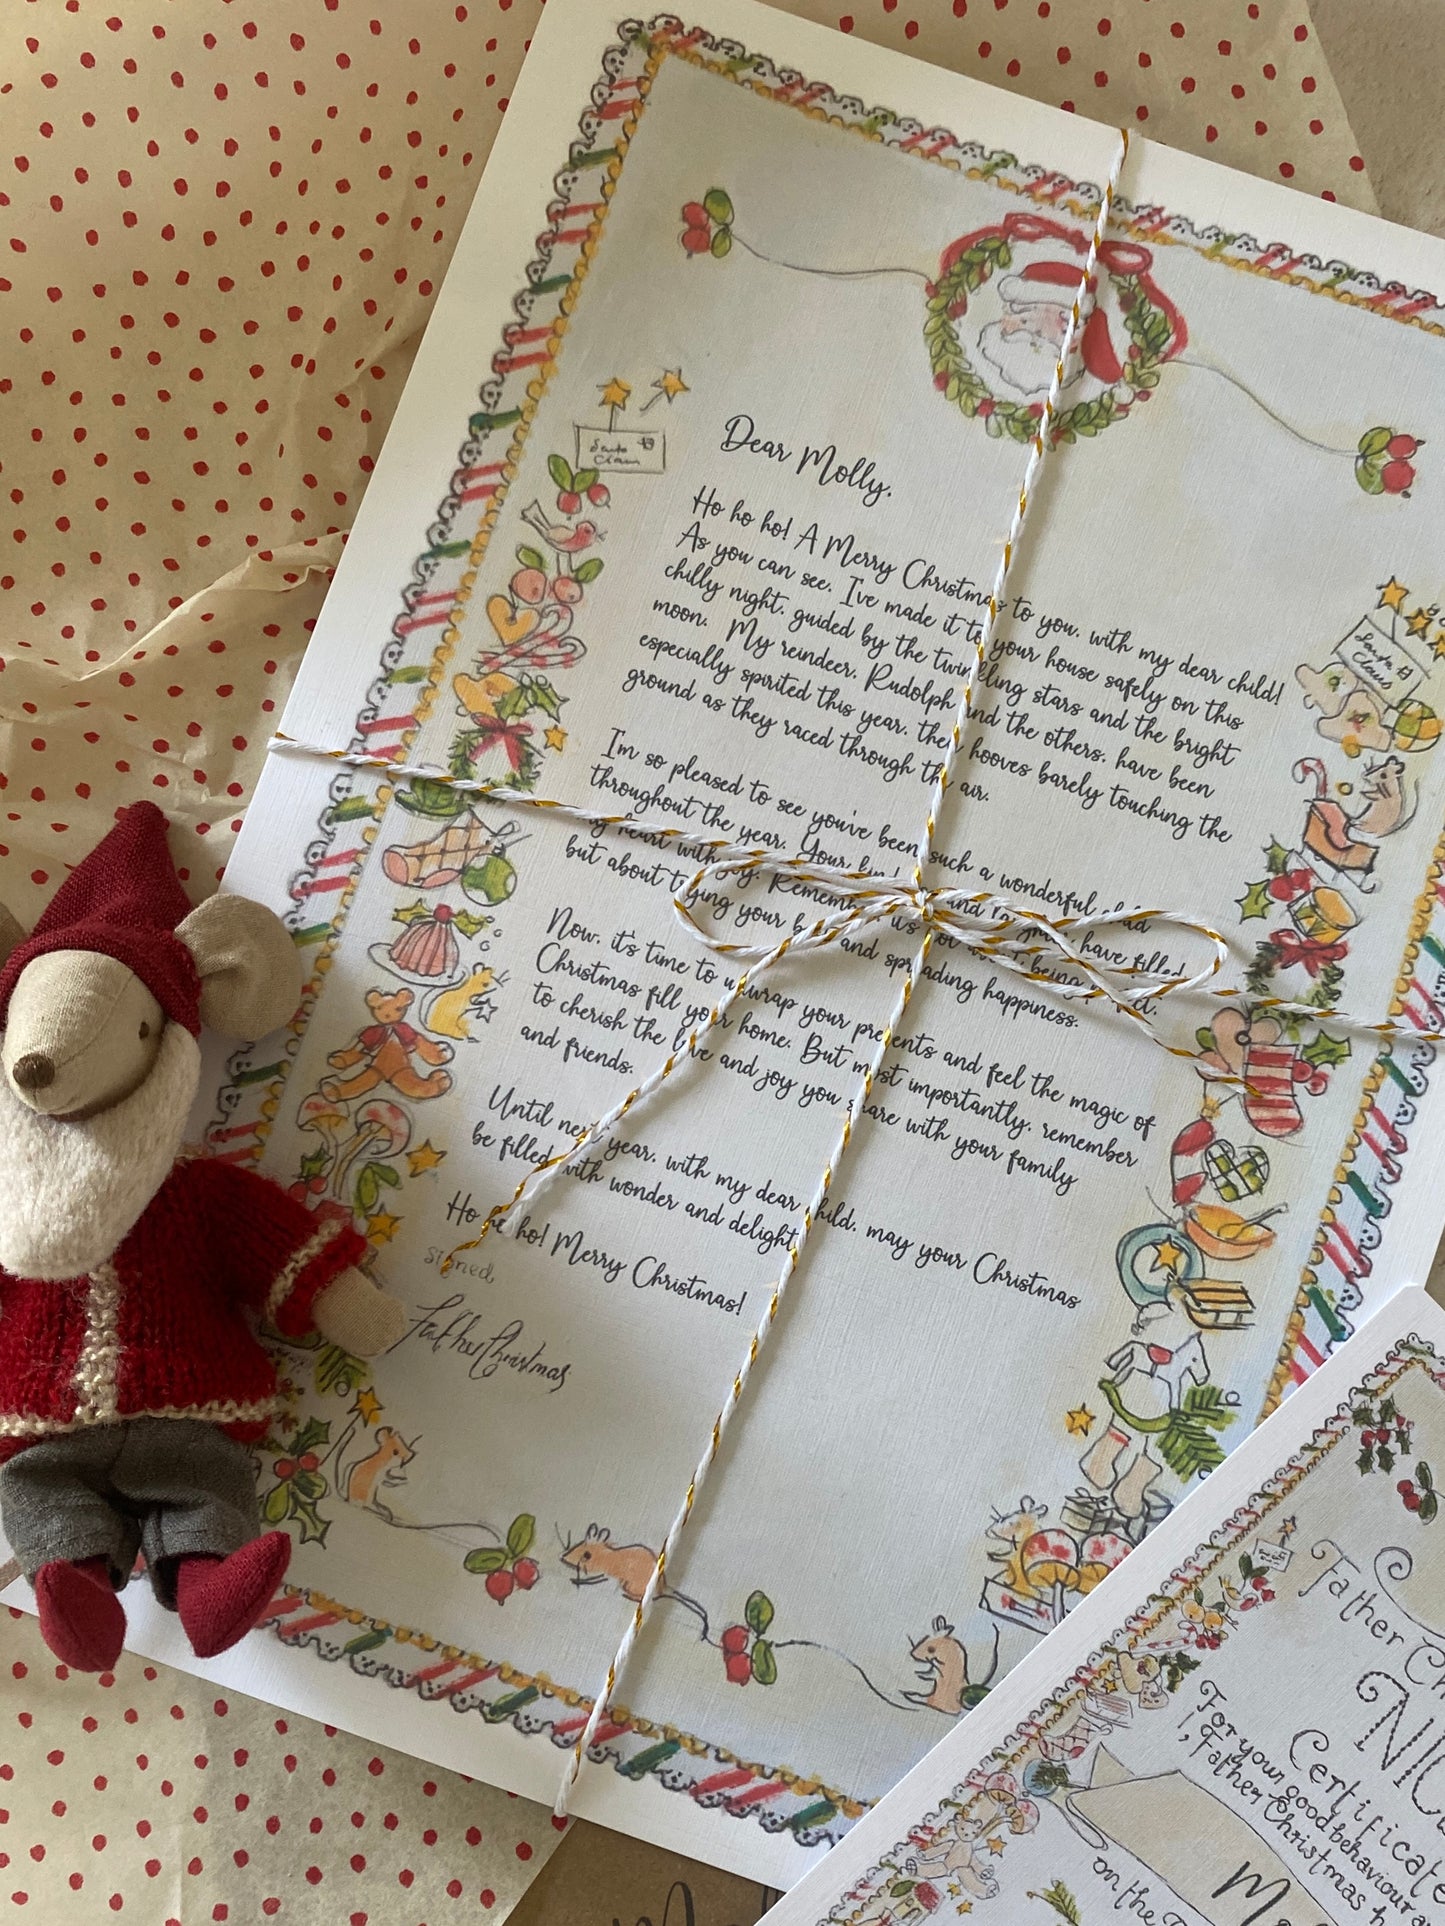 Santa
Claus
Dear Molly,
Ho ho ho! A Merry Christmas to you, with my dear child!
As you can see, I've made it to your house safely on this
chilly night, guided by the twinkling stars and the bright
moon. My reindeer, Rudolph and the others, have been
especially spirited this year, their hooves barely touching the
ground as they raced through the air.
I'm so pleased to see you've been such a wonderful child
throughout the year. Your and have filled
my heart with joy. Remember, it's not about being perfect,
but about trying your best and spreading happiness.
Now, it's time to unwrap your presents and feel the magic of
Christmas fill your home. But most importantly, remember
to cherish the love and joy you share with your family
and friends.
Until next year, with my dear child, may your Christmas
be filled with wonder and delight.
Ho ho ho! Merry Christmas!
signed,
Father Christmas
Santa
Claus
Father Ch
NIC
Certificate
For your good behaviour
I, Father Christmas
on the